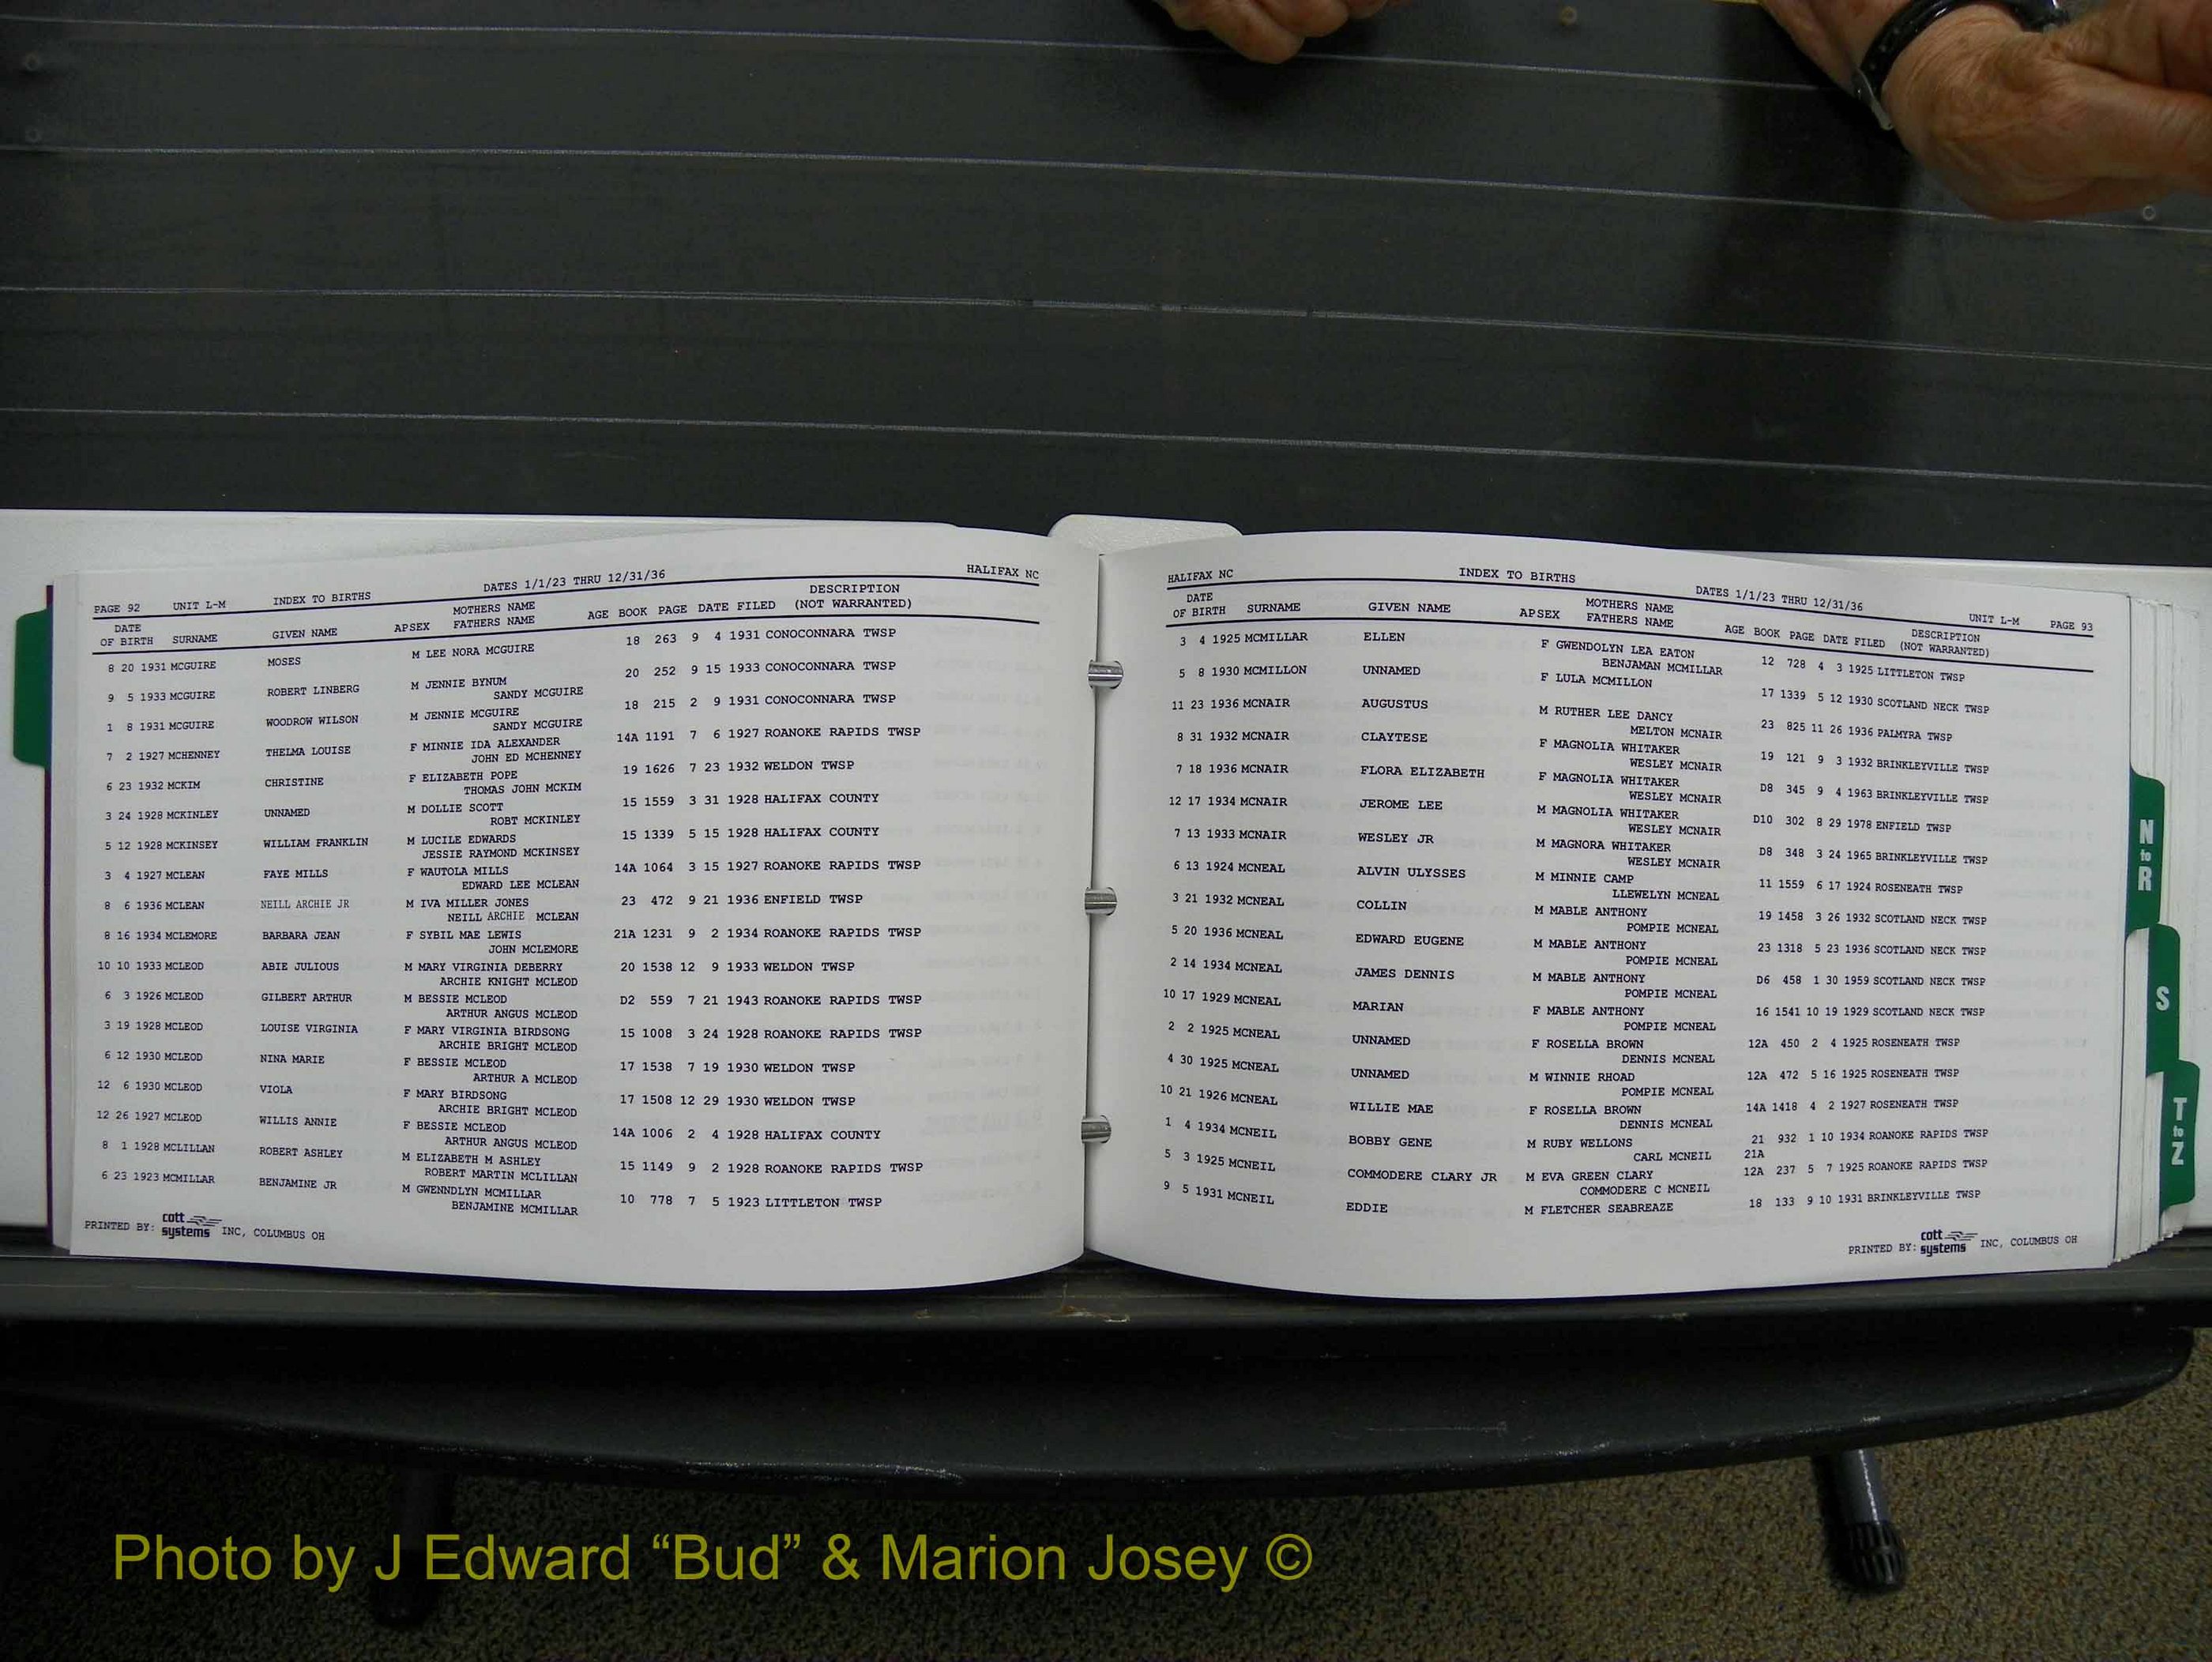 PAGE 92 UNIT L-M INDEX TO BIRTHS DATES 1/1/23 THRU 12/31/36 HALIFAX NC
DATE OF BIRTH SURNAME GIVEN NAME APSEX MOTHERS NAME FATHERS NAME AGE BOOK PAGE DATE FILED DESCRIPTION (NOT WARRANTED)
8 20 1931 MCGUIRE MOSES M LEE NORA MCGUIRE 18 263 9 4 1931 CONOCONNARA TWSP
9 5 1933 MCGUIRE ROBERT LINBERG M JENNIE BYNUM 20 252 9 15 1933 CONOCONNARA TWSP
SANDY MCGUIRE
1 8 1931 MCGUIRE WOODROW WILSON M JENNIE MCGUIRE 18 215 2 9 1931 CONOCONNARA TWSP
SANDY MCGUIRE
7 2 1927 MCHENNEY THELMA LOUISE F MINNIE IDA ALEXANDER 14A 1191 7 6 1927 ROANOKE RAPIDS TWSP
JOHN ED MCHENNEY
6 23 1932 MCKIM CHRISTINE F ELIZABETH POPE 19 1626 7 23 1932 WELDON TWSP
THOMAS JOHN MCKIM
3 24 1928 MCKINLEY UNNAMED M DOLLIE SCOTT 15 1559 3 31 1928 HALIFAX COUNTY
ROBT MCKINLEY
5 12 1928 MCKINSEY WILLIAM FRANKLIN M LUCILE EDWARDS 15 1339 5 15 1928 HALIFAX COUNTY
JESSIE RAYMOND MCKINSEY
3 4 1927 MCLEAN FAYE MILLS F WAUTOLA MILLS 14A 1064 3 15 1927 ROANOKE RAPIDS TWSP
EDWARD LEE MCLEAN
8 6 1936 MCLEAN NEILL ARCHIE JR M IVA MILLER JONES 23 472 9 21 1936 ENFIELD TWSP
NEILL ARCHIE MCLEAN
8 16 1934 MCLEMORE BARBARA JEAN F SYBIL MAE LEWIS 21A 1231 9 2 1934 ROANOKE RAPIDS TWSP
JOHN MCLEMORE
10 10 1933 MCLEOD ABIE JULIOUS M MARY VIRGINIA DEBERRY 20 1538 12 9 1933 WELDON TWSP
ARCHIE KNIGHT MCLEOD
6 3 1926 MCLEOD GILBERT ARTHUR M BESSIE MCLEOD D2 559 7 21 1943 ROANOKE RAPIDS TWSP
ARTHUR ANGUS MCLEOD
3 19 1928 MCLEOD LOUISE VIRGINIA F MARY VIRGINIA BIRDSONG 15 1008 3 24 1928 ROANOKE RAPIDS TWSP
ARCHIE BRIGHT MCLEOD
6 12 1930 MCLEOD NINA MARIE F BESSIE MCLEOD 17 1538 7 19 1930 WELDON TWSP
ARTHUR A MCLEOD
12 6 1930 MCLEOD VIOLA F MARY BIRDSONG 17 1508 12 29 1930 WELDON TWSP
ARCHIE BRIGHT MCLEOD
12 26 1927 MCLEOD WILLIS ANNIE F BESSIE MCLEOD 14A 1006 2 4 1928 HALIFAX COUNTY
ARTHUR ANGUS MCLEOD
8 1 1928 MCLILLAN ROBERT ASHLEY M ELIZABETH M ASHLEY 15 1149 9 2 1928 ROANOKE RAPIDS TWSP
ROBERT MARTIN MCLILLAN
6 23 1923 MCMILLAR BENJAMINE JR M GWENNDLYN MCMILLAR 10 778 7 5 1923 LITTLETON TWSP
BENJAMINE MCMILLAR
PRINTED BY: cott systems INC, COLUMBUS OH
HALIFAX NC INDEX TO BIRTHS DATES 1/1/23 THRU 12/31/36 UNIT L-M PAGE 93
DATE OF BIRTH SURNAME GIVEN NAME APSEX MOTHERS NAME FATHERS NAME AGE BOOK PAGE DATE FILED DESCRIPTION (NOT WARRANTED)
3 4 1925 MCMILLAR ELLEN F GWENDOLYN LEA EATON 12 728 4 3 1925 LITTLETON TWSP
BENJAMAN MCMILLAR
5 8 1930 MCMILLON UNNAMED F LULA MCMILLON 17 1339 5 12 1930 SCOTLAND NECK TWSP
11 23 1936 MCNAIR AUGUSTUS M RUTHER LEE DANCY 23 825 11 26 1936 PALMYRA TWSP
MELTON MCNAIR
8 31 1932 MCNAIR CLAYTESE F MAGNOLIA WHITAKER 19 121 9 3 1932 BRINKLEYVILLE TWSP
WESLEY MCNAIR
7 18 1936 MCNAIR FLORA ELIZABETH F MAGNOLIA WHITAKER D8 345 9 4 1963 BRINKLEYVILLE TWSP
WESLEY MCNAIR
12 17 1934 MCNAIR JEROME LEE M MAGNOLIA WHITAKER D10 302 8 29 1978 ENFIELD TWSP
WESLEY MCNAIR
7 13 1933 MCNAIR WESLEY JR M MAGNORA WHITAKER D8 348 3 24 1965 BRINKLEYVILLE TWSP
WESLEY MCNAIR
6 13 1924 MCNEAL ALVIN ULYSSES M MINNIE CAMP 11 1559 6 17 1924 ROSENEATH TWSP
LLEWELYN MCNEAL
3 21 1932 MCNEAL COLLIN M MABLE ANTHONY 19 1458 3 26 1932 SCOTLAND NECK TWSP
POMPIE MCNEAL
5 20 1936 MCNEAL EDWARD EUGENE M MABLE ANTHONY 23 1318 5 23 1936 SCOTLAND NECK TWSP
POMPIE MCNEAL
2 14 1934 MCNEAL JAMES DENNIS M MABLE ANTHONY D6 458 1 30 1959 SCOTLAND NECK TWSP
POMPIE MCNEAL
10 17 1929 MCNEAL MARIAN F MABLE ANTHONY 16 1541 10 19 1929 SCOTLAND NECK TWSP
POMPIE MCNEAL
2 2 1925 MCNEAL UNNAMED F ROSELLA BROWN 12A 450 2 4 1925 ROSENEATH TWSP
DENNIS MCNEAL
4 30 1925 MCNEAL UNNAMED M WINNIE RHOAD 12A 472 5 16 1925 ROSENEATH TWSP
POMPIE MCNEAL
10 21 1926 MCNEAL WILLIE MAE F ROSELLA BROWN 14A 1418 4 2 1927 ROSENEATH TWSP
DENNIS MCNEAL
1 4 1934 MCNEIL BOBBY GENE M RUBY WELLONS 21 932 1 10 1934 ROANOKE RAPIDS TWSP
CARL MCNEIL 21A
5 3 1925 MCNEIL COMMODERE CLARY JR M EVA GREEN CLARY 12A 237 5 7 1925 ROANOKE RAPIDS TWSP
COMMODERE C MCNEIL
9 5 1931 MCNEIL EDDIE M FLETCHER SEABREAZE 18 133 9 10 1931 BRINKLEYVILLE TWSP
PRINTED BY: cott systems INC, COLUMBUS OH
N to R
S
T to Z
Photo by J Edward “Bud” & Marion Josey ©